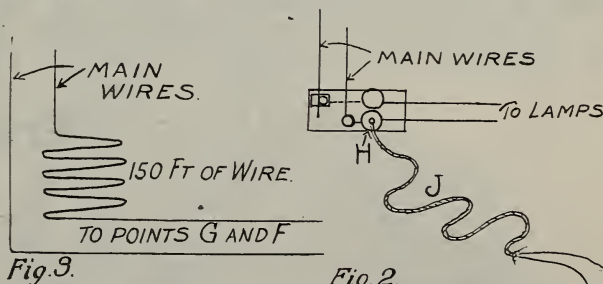 MAIN
WIRES.
150 FT OF WIRE.
TO POINTS G AND F
Fig. 9.
MAIN WIRES
TO LAMPS
H
J
Fig. 2.